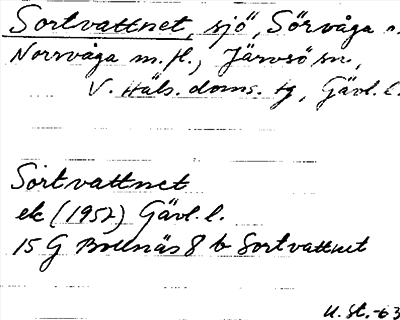 Sortvattnet, sjö, Sörvåga o.
Norrvåga m.fl., Järvsö sn.,
V. Häls. doms. tg, Gävl. l.
Sortvattnet
ek (1952) Gävl. l.
15 G Bollnäs 8 b Sortvattnet
U. St. -63